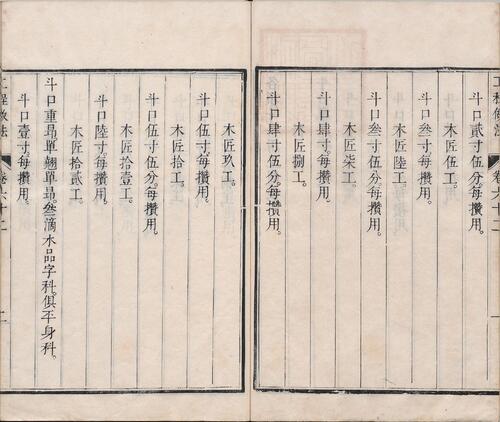 斗口貳寸伍分。每攢用。
木匠伍工。
斗口叁寸。每攢用。
木匠陸工。
斗口叁寸伍分。每攢用。
木匠柒工。
斗口肆寸。每攢用。
木匠捌工。
斗口肆寸伍分。每攢用。
木匠玖工。
斗口伍寸。每攢用。
木匠拾工。
斗口伍寸伍分。每攢用。
木匠拾壹工。
斗口陸寸。每攢用。
木匠拾貳工。
斗口重昂。單翹單昂。叁滴水品字科。俱平身科。
斗口壹寸。每攢用。
工程做法
卷六十二
一
工程做法
卷六十二
二